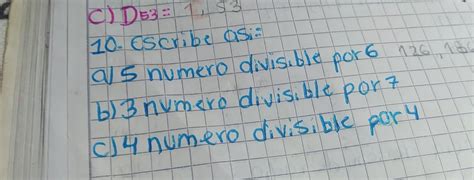 C) D53 = 1, 53
10. Escribe así:=
a) 5 numero divisible por 6 126, 1
b) 3 numero divisible por 7
c) 4 numero divisible por 4